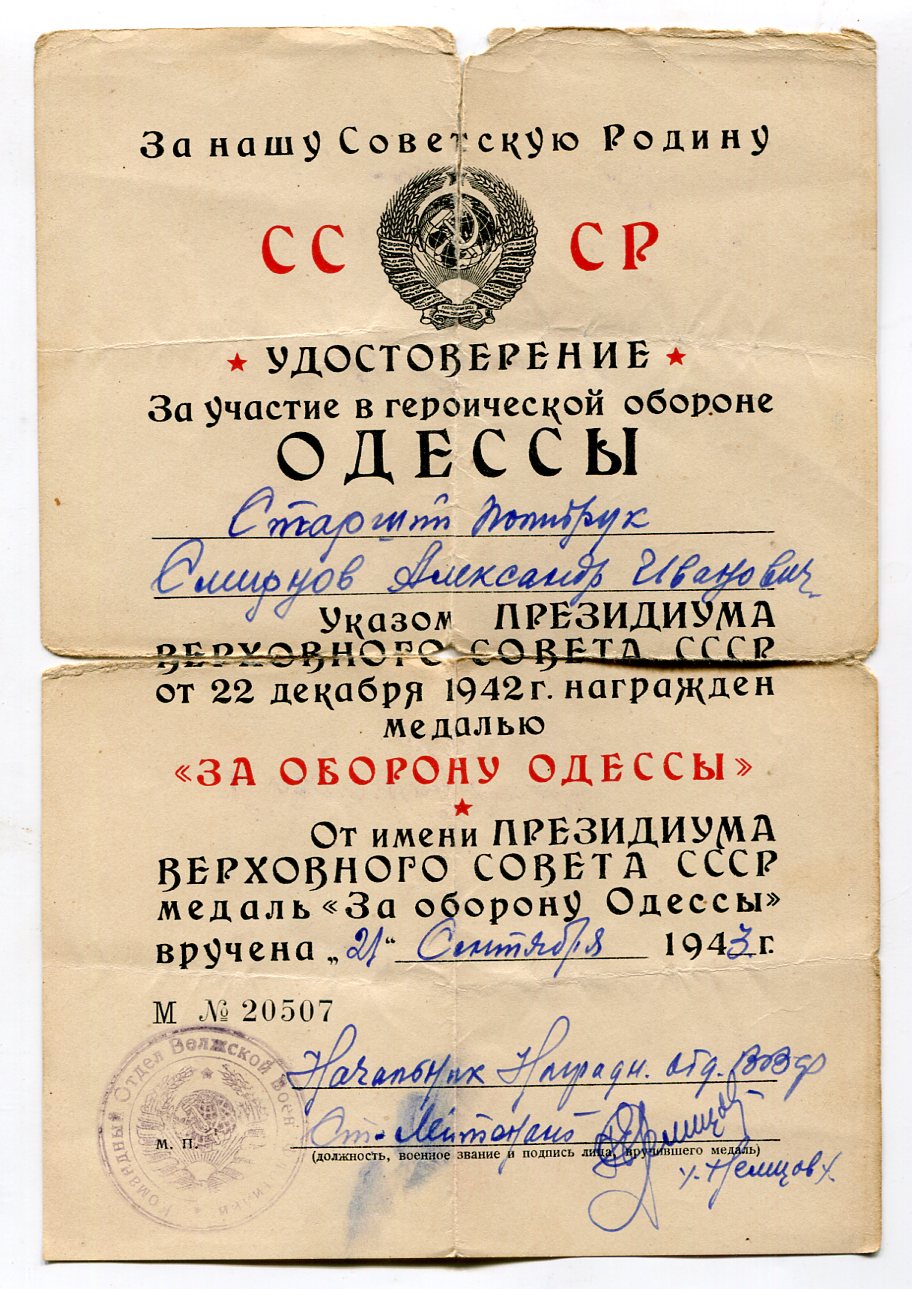 За нашу Советскую Родину
СССР
УДОСТОВЕРЕНИЕ
За участие в героической обороне
ОДЕССЫ
Старший политрук
Смирнов Александр Иванович
Указом ПРЕЗИДИУМА
ВЕРХОВНОГО СОВЕТА СССР
от 22 декабря 1942 г. награжден
медалью
«ЗА ОБОРОНУ ОДЕССЫ»
От имени ПРЕЗИДИУМА
ВЕРХОВНОГО СОВЕТА СССР
медаль «За оборону Одессы»
вручена „21“ Сентября 1943 г.
М № 20507
Командный Отдел Волжской Воен
Начальник Наградн. отд. ВВФ
м. п.
Ст. Лейтенант
(должность, военное звание и подпись лица, вручившего медаль)
Немцов